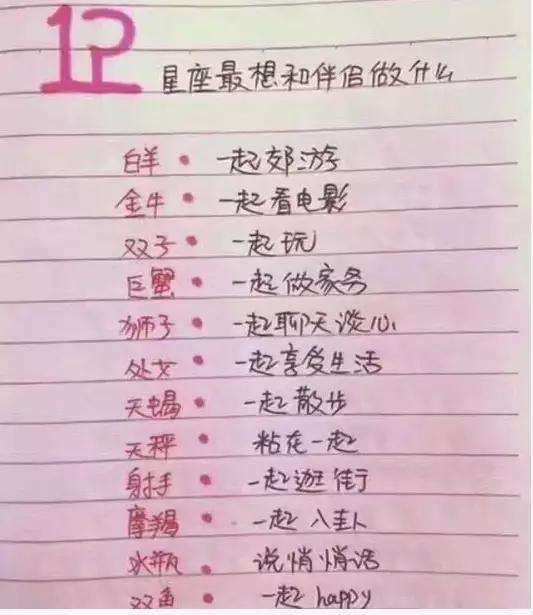 12 星座最想和伴侣做什么
白羊 • 一起郊游
金牛 • 一起看电影
双子 • 一起玩
巨蟹 • 一起做家务
狮子 • 一起聊天谈心
处女 • 一起享爱生活
天蝎 • 一起散步
天秤 • 粘在一起
射手 • 一起逛街
摩羯 • 一起八卦
水瓶 • 说悄悄话
双鱼 • 一起 happy